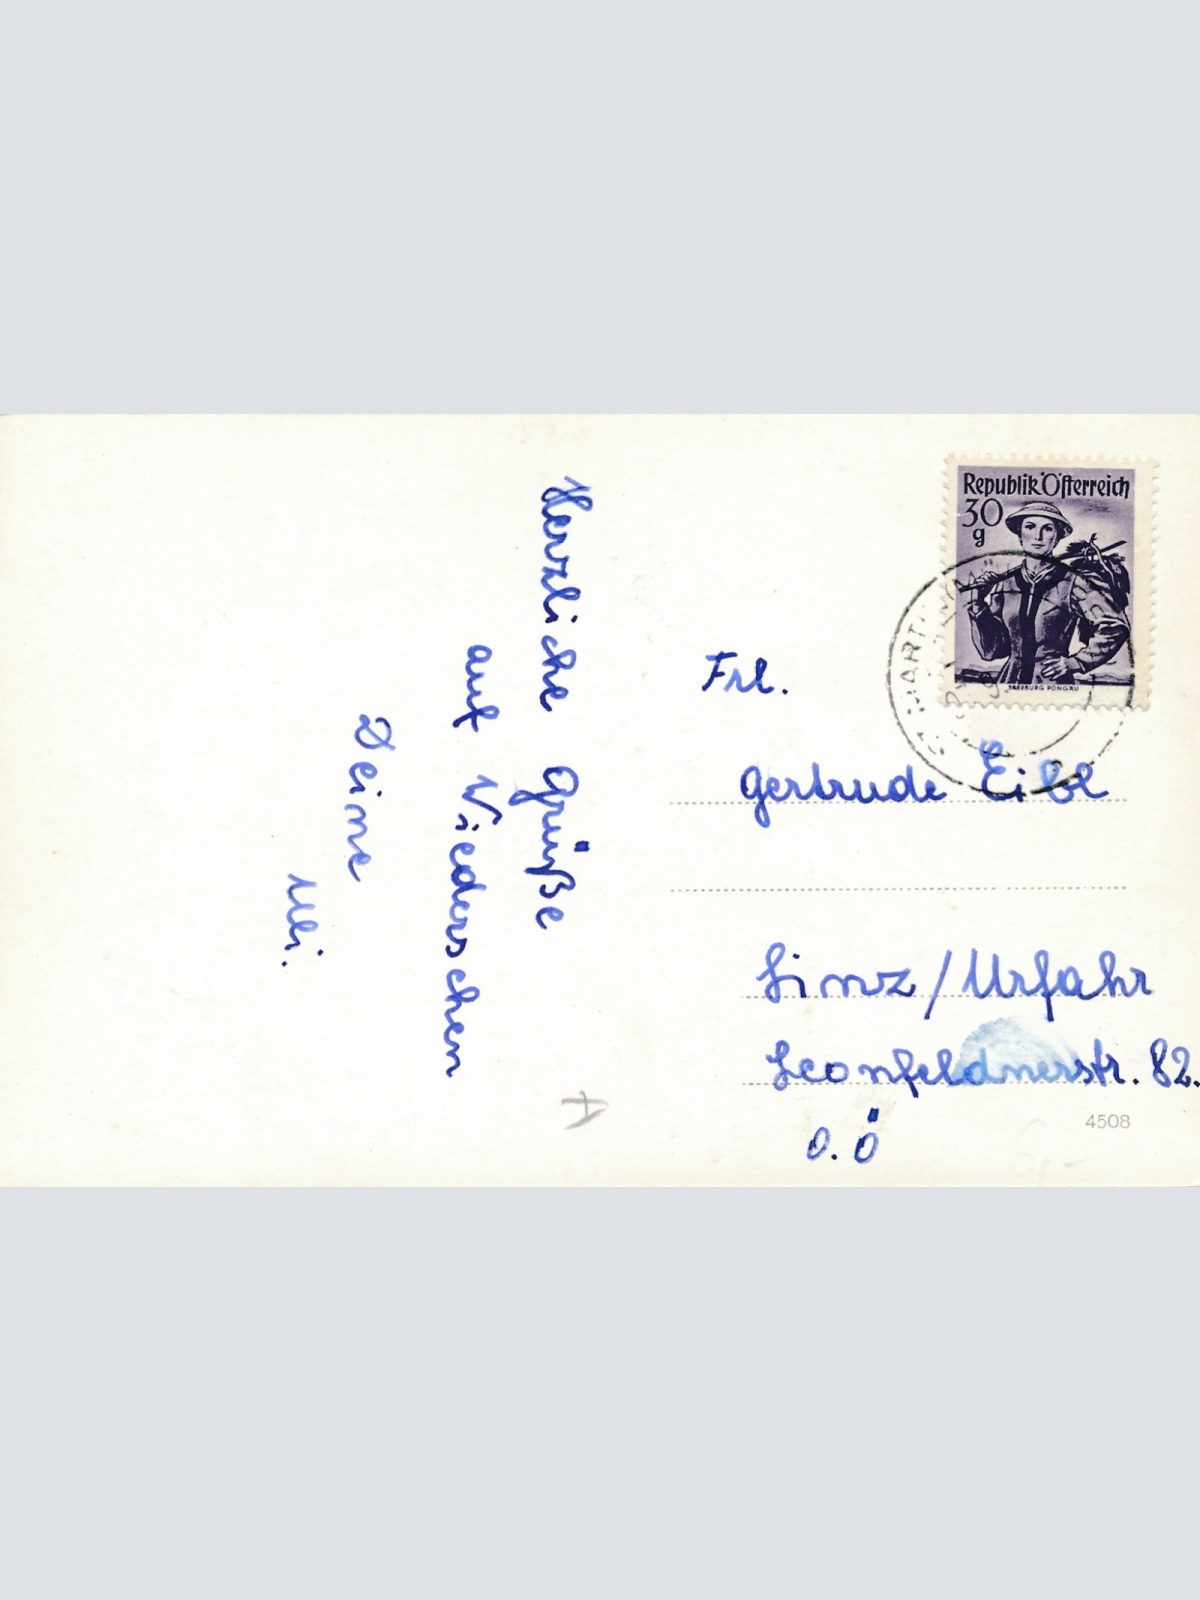 Herzliche Grüße
auf Wiedersehen
Deine
Uli.
Republik Österreich
30
g
SALZBURG PONGAU
ST. MARTIN
Frl.
Gertrude Eibl
Linz/Urfahr
Leonfeldnerstr. 82.
O.Ö
4508